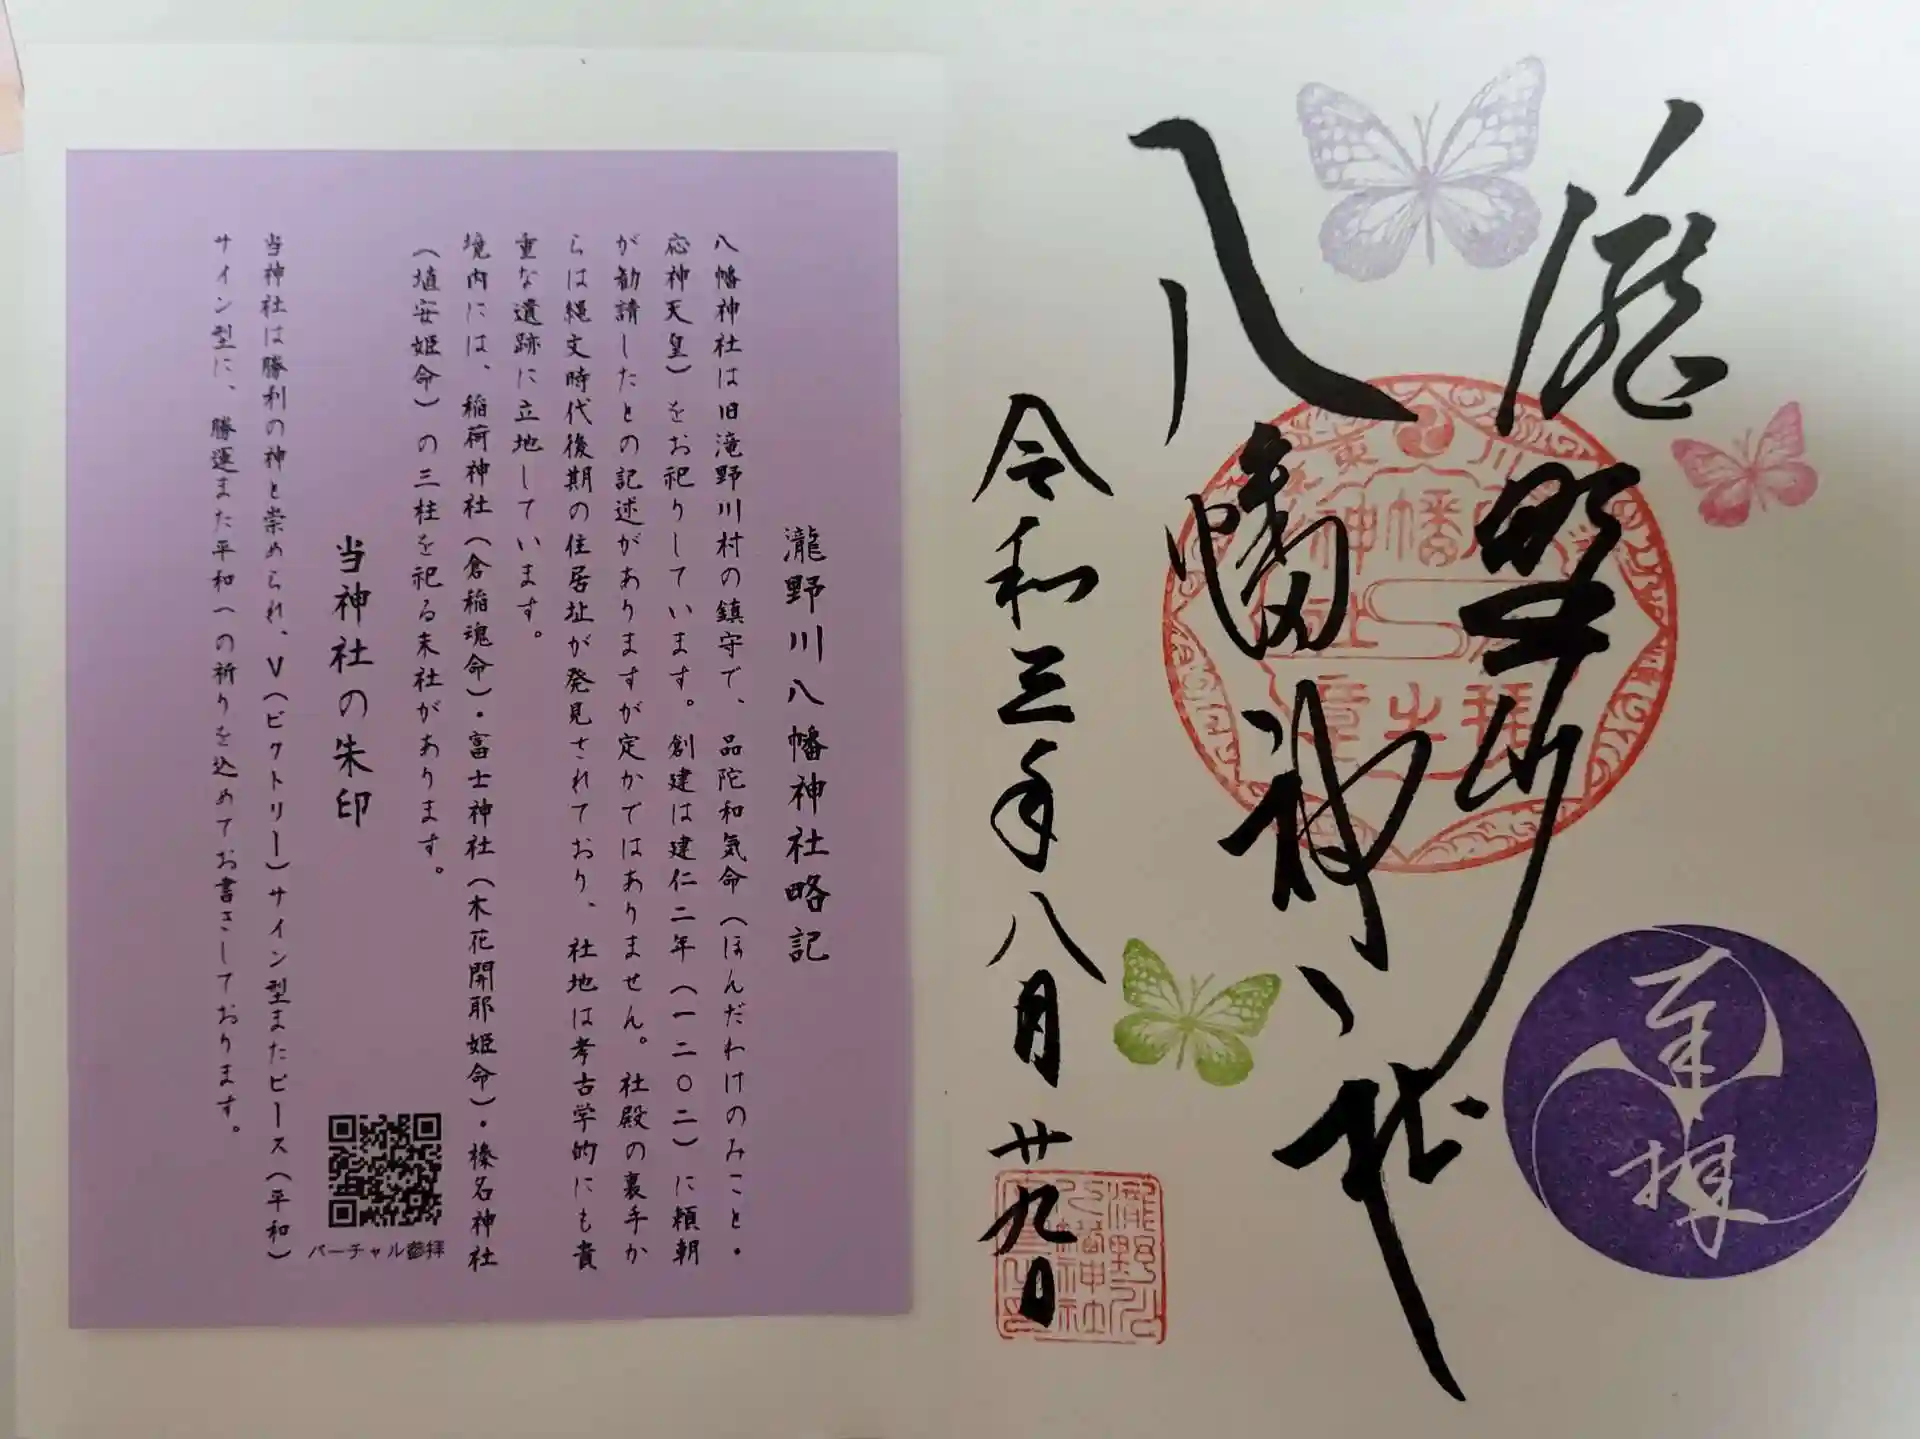 奉拝
瀧野川
八幡神社
令和三年八月廿九日
瀧野川
八幡神社
瀧野川八幡神社略記
八幡神社は旧滝野川村の鎮守で、品陀和気命（ほんだわけのみこと・
応神天皇）をお祀りしています。創建は建仁二年（一二〇二）に頼朝
が勧請したとの記述がありますが定かではありません。社殿の裏手か
らは縄文時代後期の住居址が発見されており、社地は考古学的にも貴
重な遺跡に立地しています。
境内には、稲荷神社（倉稲魂命）・富士神社（木花開耶姫命）・榛名神社
（埴安姫命）の三柱を祀る末社があります。
当神社の朱印
当神社は勝利の神と崇められ、V（ビクトリー）サイン型またピース（平和）
サイン型に、勝運また平和への祈りを込めてお書きしております。
バーチャル参拝